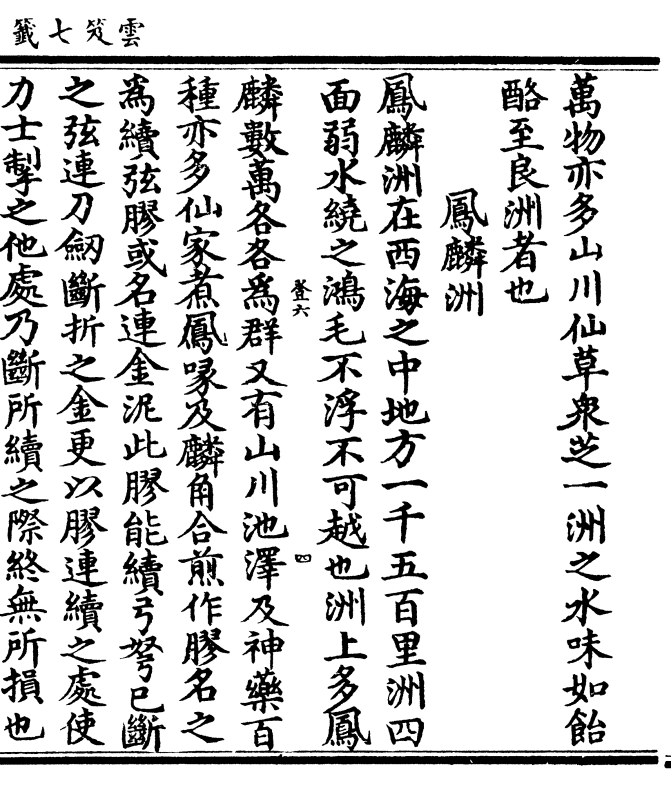 雲笈七籤
萬物亦多山川仙草衆芝一洲之水味如飴
酪至良洲者也
鳳麟洲
鳳麟洲在西海之中地方一千五百里洲四
面弱水繞之鴻毛不浮不可越也洲上多鳳
登六
四
麟數萬各各爲群又有山川池澤及神藥百
種亦多仙家煮鳳喙及麟角合煎作膠名之
爲續弦膠或名連金泥此膠能續弓弩已斷
之弦連刀劒斷折之金更以膠連續之處使
力士掣之他處乃斷所續之際終無所損也